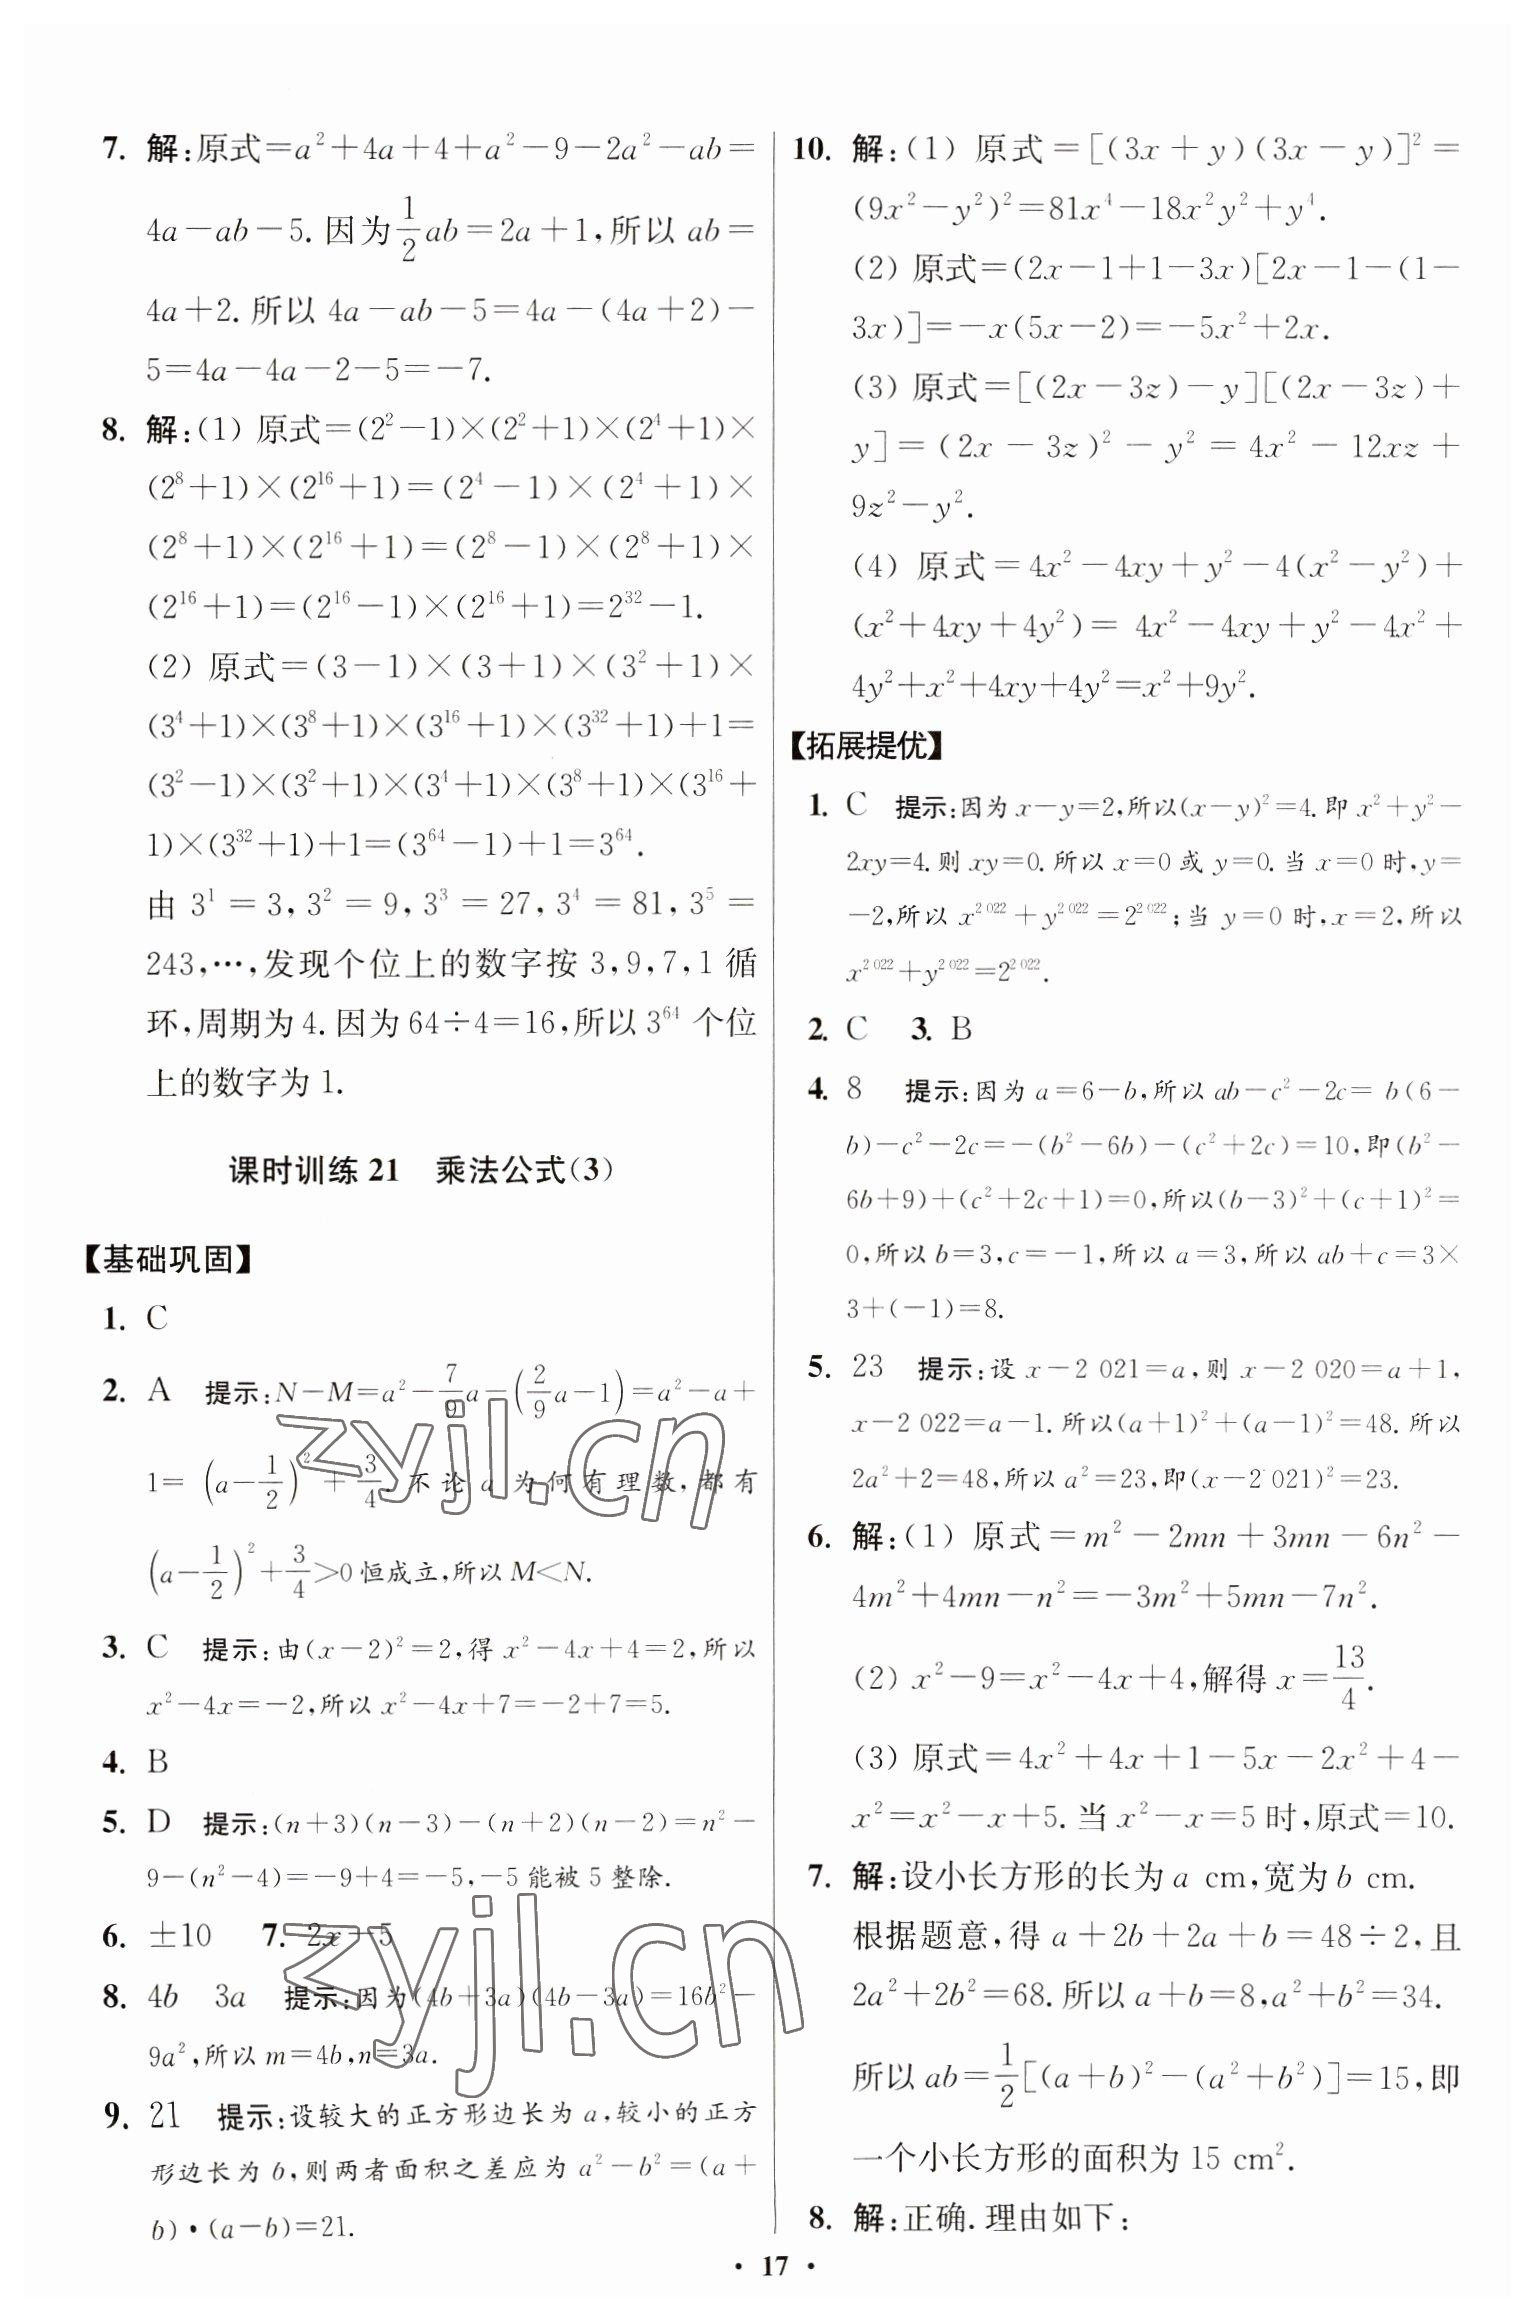 7. 解:原式=a²+4a+4+a²-9-2a²-ab=
4a-ab-5.因为1/2ab=2a+1,所以ab=
4a+2.所以4a-ab-5=4a-(4a+2)-
5=4a-4a-2-5=-7.
8. 解:(1) 原式=(2²-1)×(2²+1)×(2⁴+1)×
(2⁸+1)×(2¹⁶+1)=(2⁴-1)×(2⁴+1)×
(2⁸+1)×(2¹⁶+1)=(2⁸-1)×(2⁸+1)×
(2¹⁶+1)=(2¹⁶-1)×(2¹⁶+1)=2³²-1.
(2) 原式=(3-1)×(3+1)×(3²+1)×
(3⁴+1)×(3⁸+1)×(3¹⁶+1)×(3³²+1)+1=
(3²-1)×(3²+1)×(3⁴+1)×(3⁸+1)×(3¹⁶+
1)×(3³²+1)+1=(3⁶⁴-1)+1=3⁶⁴.
由3¹=3,3²=9,3³=27,3⁴=81,3⁵=
243,…,发现个位上的数字按3,9,7,1循
环,周期为4.因为64÷4=16,所以3⁶⁴个位
上的数字为1.
课时训练21 乘法公式(3)
【基础巩固】
1. C
2. A 提示:N-M=a²-7/9a-(2/9a-1)=a²-a+
1=(a-1/2)²+3/4.不论a为何有理数,都有
(a-1/2)²+3/4>0恒成立,所以M<N.
3. C 提示:由(x-2)²=2,得x²-4x+4=2,所以
x²-4x=-2,所以x²-4x+7=-2+7=5.
4. B
5. D 提示:(n+3)(n-3)-(n+2)(n-2)=n²-
9-(n²-4)=-9+4=-5,-5能被5整除.
6. ±10 7. 2x-5
8. 4b 3a 提示:因为(4b+3a)(4b-3a)=16b²-
9a²,所以m=4b,n=3a.
9. 21 提示:设较大的正方形边长为a,较小的正方
形边长为b,则两者面积之差应为a²-b²=(a+
b)·(a-b)=21.
10. 解:(1) 原式=[(3x+y)(3x-y)]²=
(9x²-y²)²=81x⁴-18x²y²+y⁴.
(2) 原式=(2x-1+1-3x)[2x-1-(1-
3x)]=-x(5x-2)=-5x²+2x.
(3) 原式=[(2x-3z)-y][(2x-3z)+
y]=(2x-3z)²-y²=4x²-12xz+
9z²-y².
(4) 原式=4x²-4xy+y²-4(x²-y²)+
(x²+4xy+4y²)=4x²-4xy+y²-4x²+
4y²+x²+4xy+4y²=x²+9y².
【拓展提优】
1. C 提示:因为x-y=2,所以(x-y)²=4.即x²+y²-
2xy=4.则xy=0.所以x=0或y=0.当x=0时,y=
-2,所以x²⁰²²+y²⁰²²=2²⁰²²;当y=0时,x=2,所以
x²⁰²²+y²⁰²²=2²⁰²².
2. C 3. B
4. 8 提示:因为a=6-b,所以ab-c²-2c=b(6-
b)-c²-2c=-(b²-6b)-(c²+2c)=10,即(b²-
6b+9)+(c²+2c+1)=0,所以(b-3)²+(c+1)²=
0,所以b=3,c=-1,所以a=3,所以ab+c=3×
3+(-1)=8.
5. 23 提示:设x-2 021=a,则x-2 020=a+1,
x-2 022=a-1.所以(a+1)²+(a-1)²=48.所以
2a²+2=48,所以a²=23,即(x-2 021)²=23.
6. 解:(1) 原式=m²-2mn+3mn-6n²-
4m²+4mn-n²=-3m²+5mn-7n².
(2) x²-9=x²-4x+4,解得x=13/4.
(3) 原式=4x²+4x+1-5x-2x²+4-
x²=x²-x+5.当x²-x=5时,原式=10.
7. 解:设小长方形的长为a cm,宽为b cm.
根据题意,得a+2b+2a+b=48÷2,且
2a²+2b²=68.所以a+b=8,a²+b²=34.
所以ab=1/2[(a+b)²-(a²+b²)]=15,即
一个小长方形的面积为15 cm².
8. 解:正确.理由如下:
·17·
zyjl.cn
zyjl.cn